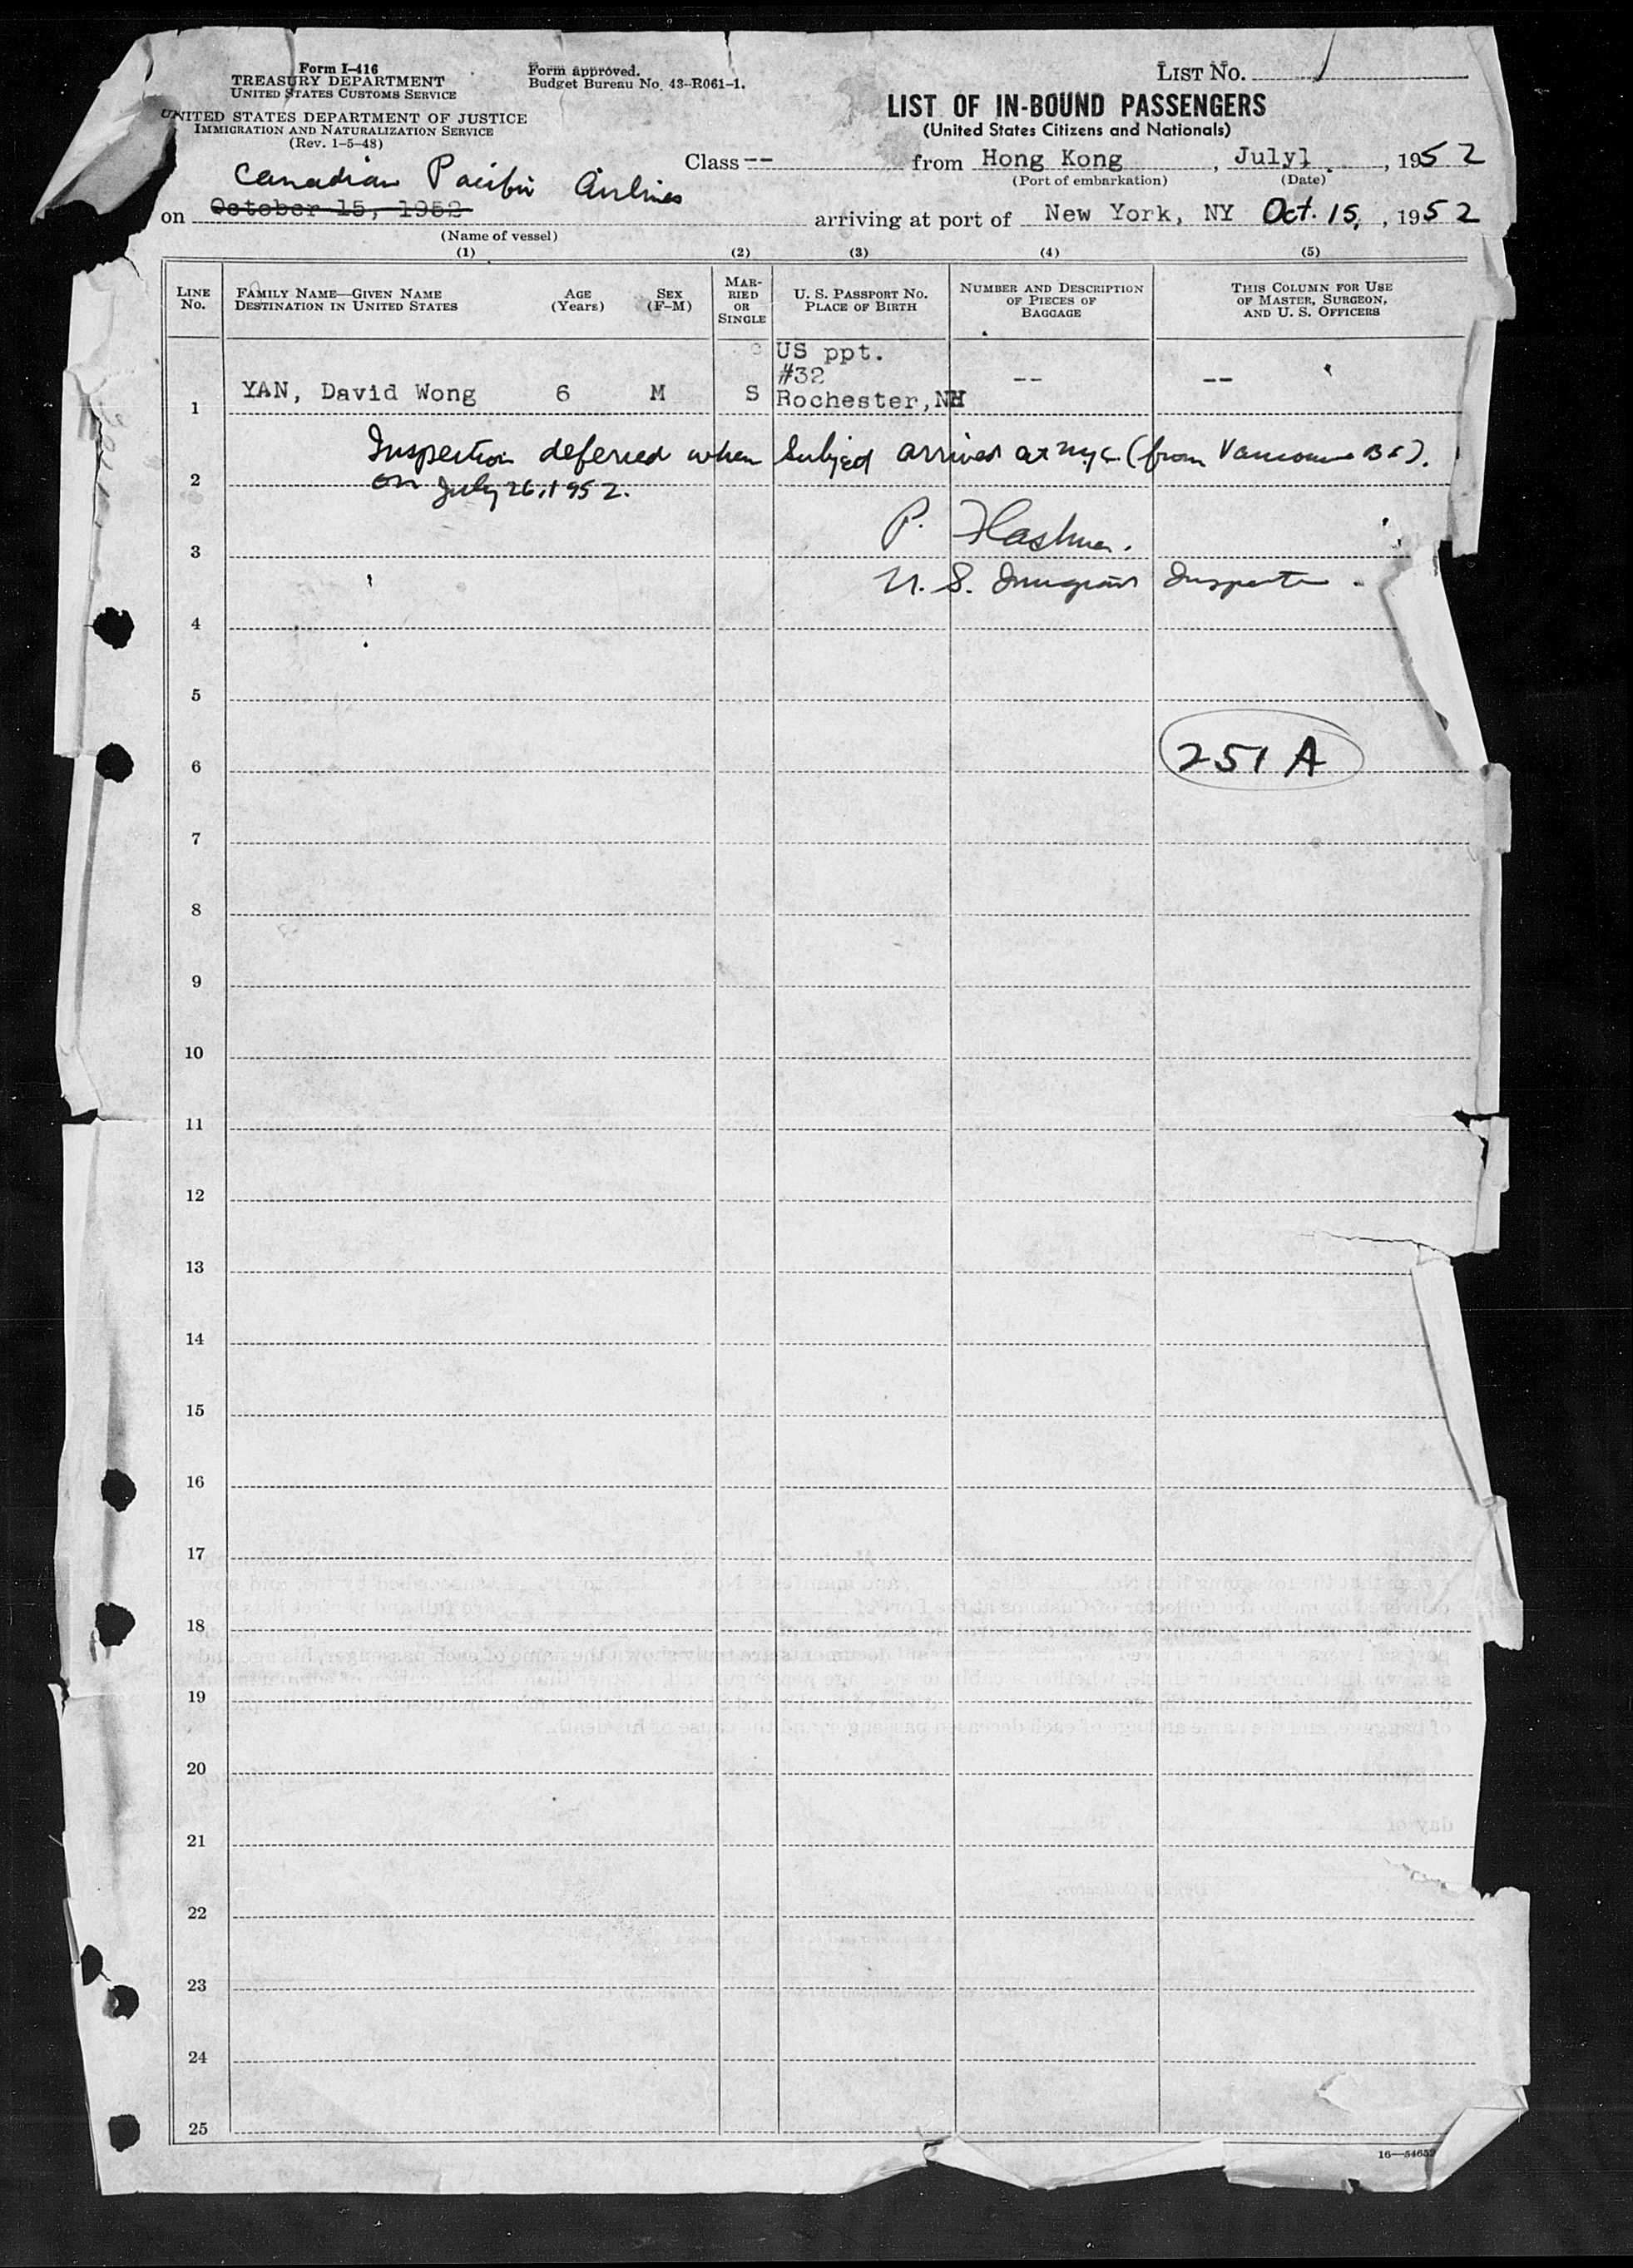 Form I-416
TREASURY DEPARTMENT
UNITED STATES CUSTOMS SERVICE
UNITED STATES DEPARTMENT OF JUSTICE
IMMIGRATION AND NATURALIZATION SERVICE
(Rev. 1-5-48)
Form approved.
Budget Bureau No. 43-R061-1.
LIST NO. 1
LIST OF IN-BOUND PASSENGERS
(United States Citizens and Nationals)
Class -- from Hong Kong, July 1, 1952
(Port of embarkation) (Date)
Canadian Pacific Airlines
on October 15, 1952 arriving at port of New York, NY Oct. 15, 1952
(Name of vessel)
(1) (2) (3) (4) (5)
LINE NO.
FAMILY NAME—GIVEN NAME
DESTINATION IN UNITED STATES
AGE (Years)
SEX (F-M)
MARRIED OR SINGLE
U. S. PASSPORT NO.
PLACE OF BIRTH
NUMBER AND DESCRIPTION OF PIECES OF BAGGAGE
THIS COLUMN FOR USE OF MASTER, SURGEON, AND U. S. OFFICERS
US ppt.
#32
1 YAN, David Wong 6 M S Rochester, NH -- --
Inspection deferred when subject arrived at NYC (from Vancouver BC).
2 on July 26, 1952.
3 P.
U. S. Immigrant Inspector.
4
5
6 251 A
7
8
9
10
11
12
13
14
15
16
17
18
19
20
21
22
23
24
25